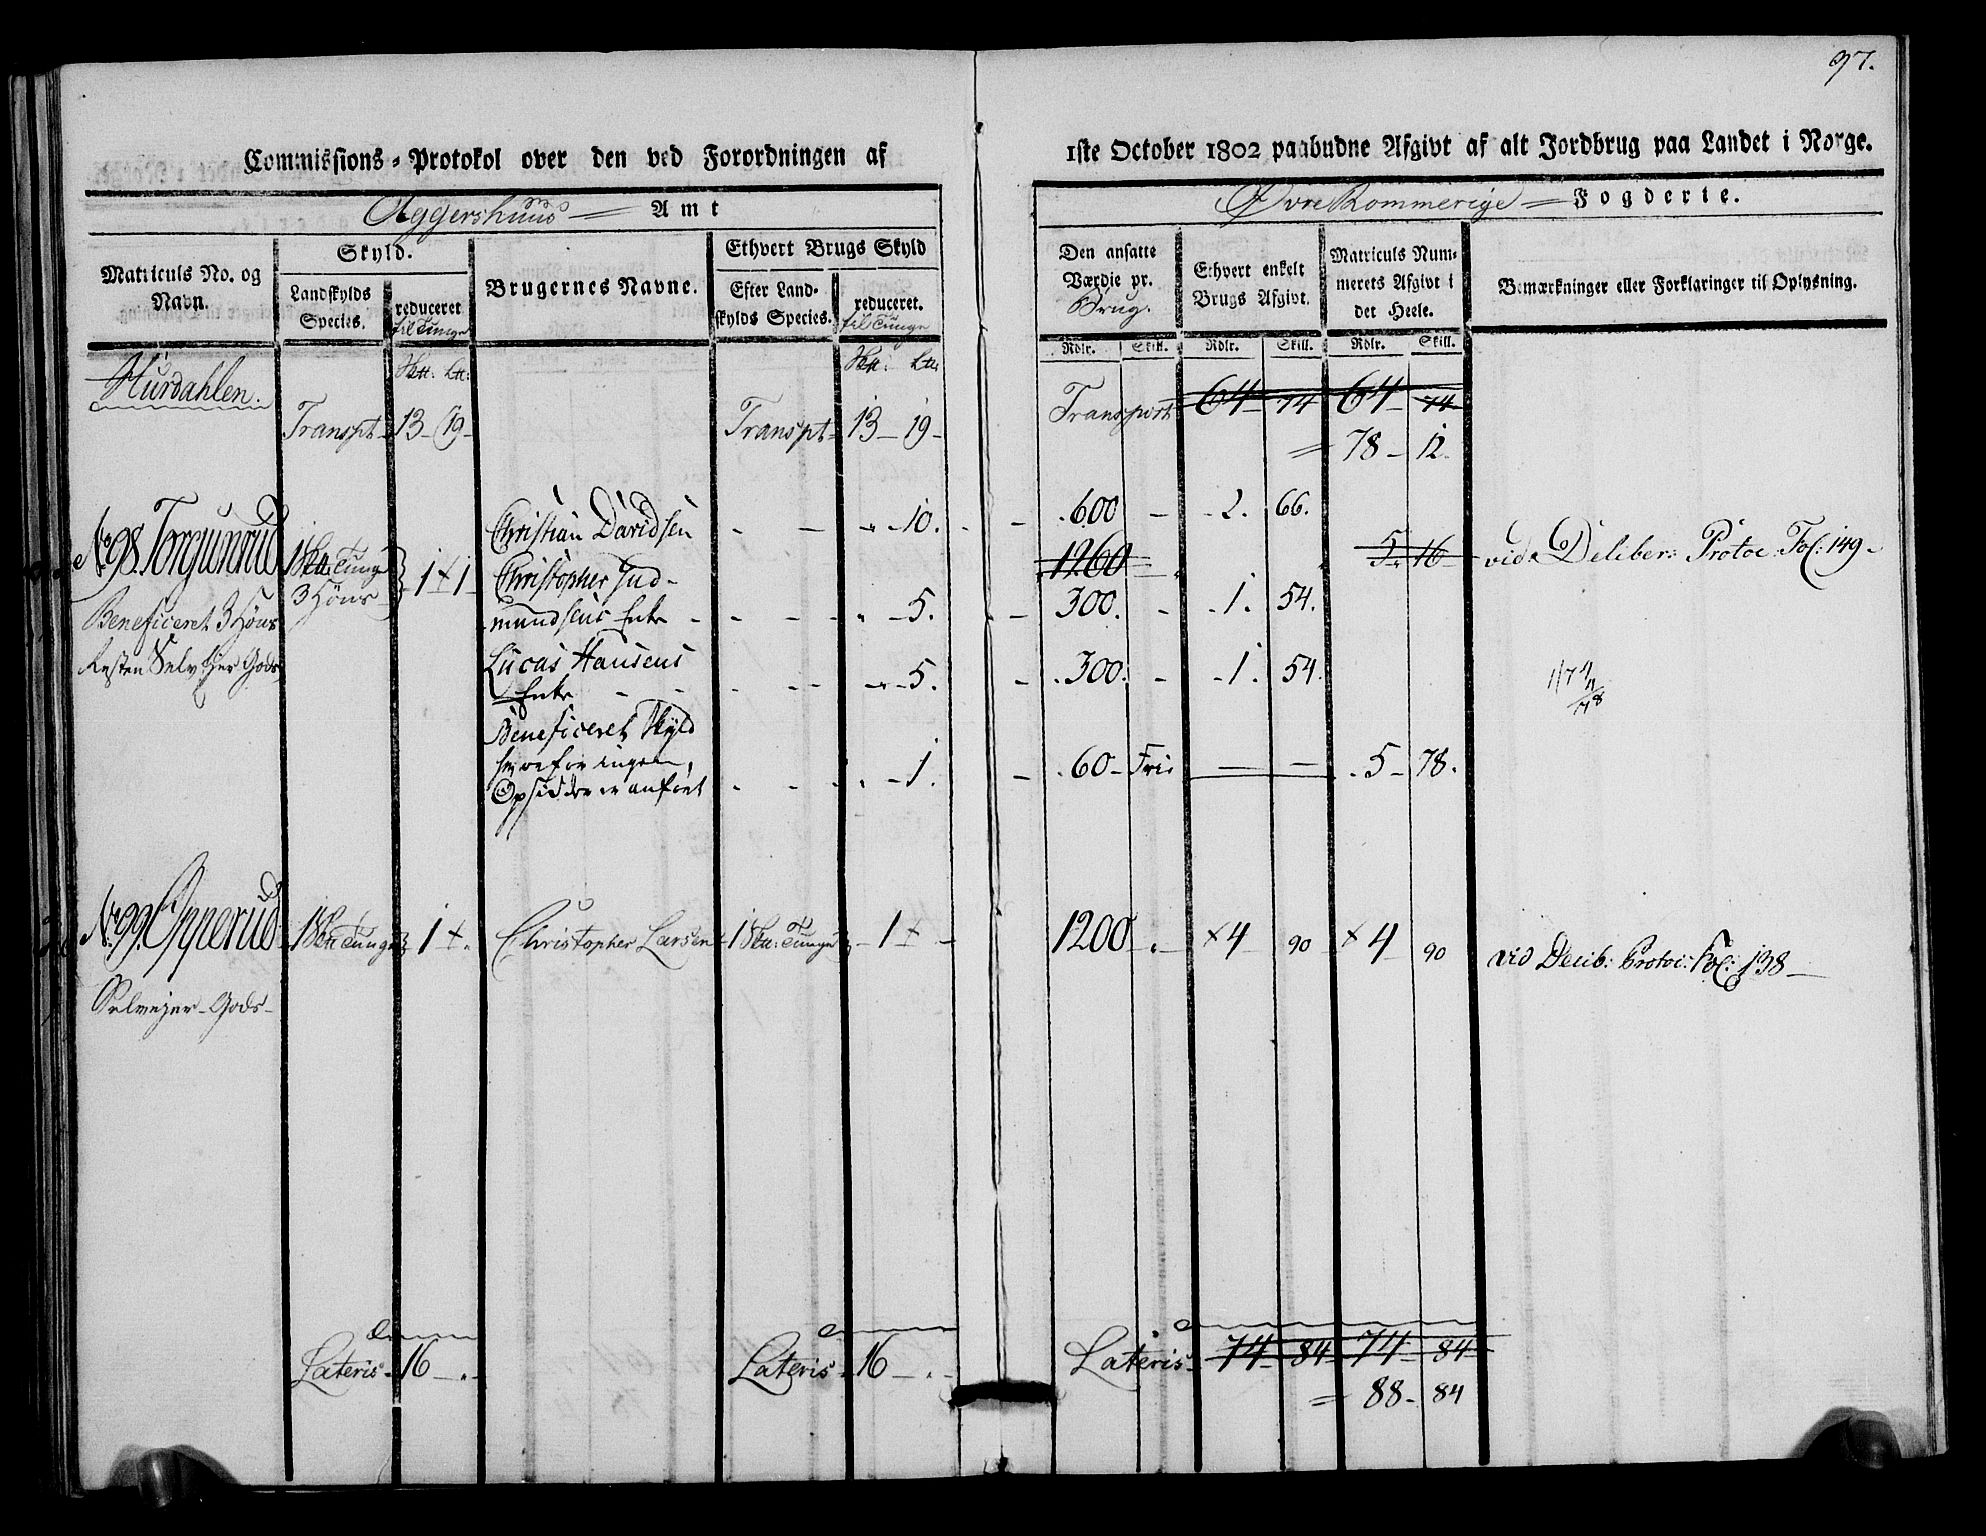 97.
Commissions-Protokol over den ved Forordningen af
1ste October 1802 paabudne Afgivt af alt Jordbrug paa Landet i Norge.
Aggershuus Amt
Øvre Rommerige Fogderie.
Matriculs No. og Navn.
Skyld.
Landskylds Species.
reduceret til Tunge
Brugernes Navne.
Ethvert Brugs Skyld
Efter Landskylds Species.
reduceret. til Tunge
Den ansatte Værdie pr. Brug.
Ethvert enkelt Brugs Afgivt.
Matriculs Nummerets Afgivt i det Heele.
Bemærkninger eller Forklaringer til Oplysning.
Rdlr. Skill. Rdlr. Skill. Rdlr. Skill.
Hurdahlen.
Transpt 13 - 19 -
Transpt 13 - 19 -
Transport 64 - 74 64 - 74
= 78 - 12.
No 98. Torgunrud
Beneficeret 3 Høns
Resten Selv Ejer Gods
1 Tunge
3 Høns
1 + 1
Christian Davidsen - 10. 600 - 2. 66.
1260 5 - 16 vid. Deliber: Protoc. Fol: 149 -
Christopher Gudmundsens Enke - 5. 300. - 1. 54.
Lucas Hansens
Enke - 5. 300. - 1. 54.
Beneficeret Skyld
hvorfor ingen
Opsidder er anført - 1. 60 - Frie - 5 - 78.
No 99. Opperud 1 Tunge 1 +. Christopher Larsen 1 Tunge 1 + 1200 - +4 90 +4 90 vid Delib: Protoc: Fol: 138 -
Selvejer - Gods -
Lateris - 16 - . -
Lateris - 16 - . -
Lateris - 74 - 84 - 74 - 84
= 88 - 84